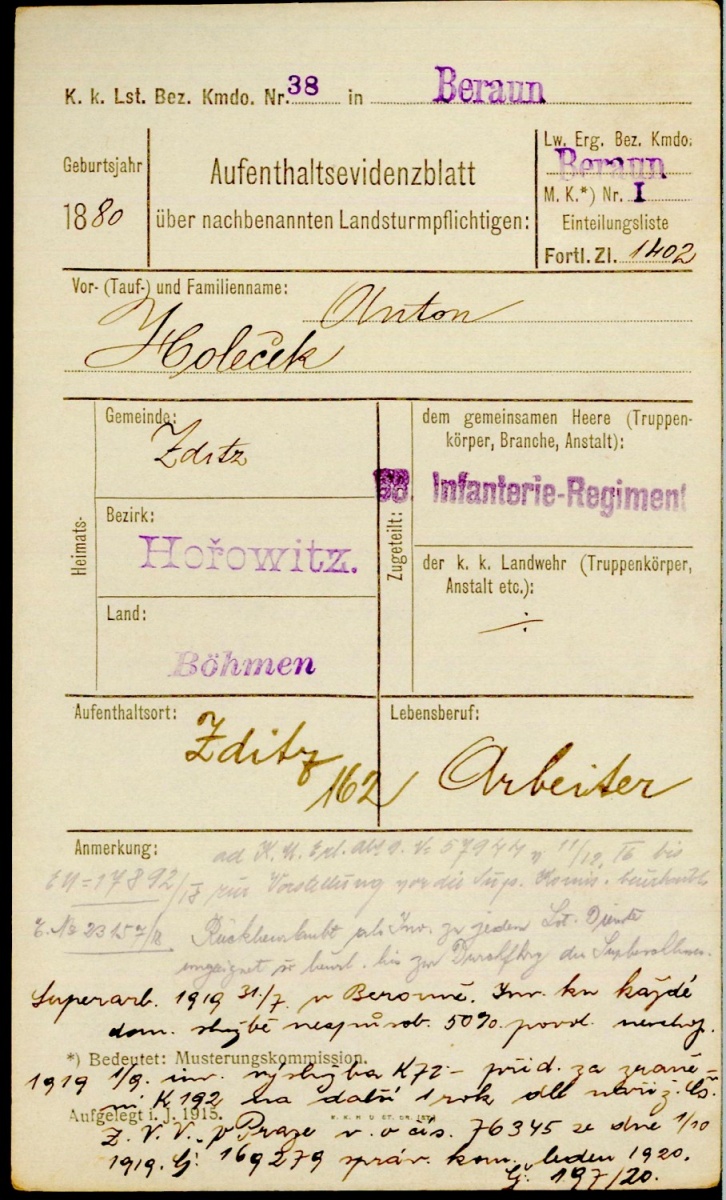 K. k. Lst. Bez. Kmdo. Nr. 38 in Beraun
Geburtsjahr
1880
Aufenthaltsevidenzblatt
über nachbenannten Landsturmpflichtigen:
Lw. Erg. Bez. Kmdo:
Beraun
M. K.*) Nr. I
Einteilungsliste
Fortl. Zl. 1402
Vor- (Tauf-) und Familienname: Anton
Holeček
Heimats-
Gemeinde:
Zditz
Bezirk:
Hořowitz.
Land:
Böhmen
Zugeteilt:
dem gemeinsamen Heere (Truppen-
körper, Branche, Anstalt):
Infanterie-Regiment
der k. k. Landwehr (Truppenkörper,
Anstalt etc.):
Aufenthaltsort:
Zditz
162
Lebensberuf:
Arbeiter
Anmerkung: ad K. M. Erl. Abt. V: 57944 v. 11/12. 16 bis
17892/18 zur Vorstellung vor die Sup. Komis. beurlaubt
E. No 23157/18 Rückbeurlaubt als Inv. zu jeden Lst. Dienste
ungeeignet u. beurl. bis zur Durchfhrg der
Superarb. 1919 31./7. v Berouně. Inv. ku každé
dom. službě nespůsob. 50% povol. neschop.
*) Bedeutet: Musterungskommission.
1919 1/9. inv. výslužba K 72- příd. za zraně-
ní K 192 na další 1 rok dle naříz. čs.
Aufgelegt i. J. 1915.
Z. V. V. v Praze v. o čís. 76345 ze dne 1/10
1919. Čj. 169279 správ. kom. leden 1920.
Čj. 197/20.